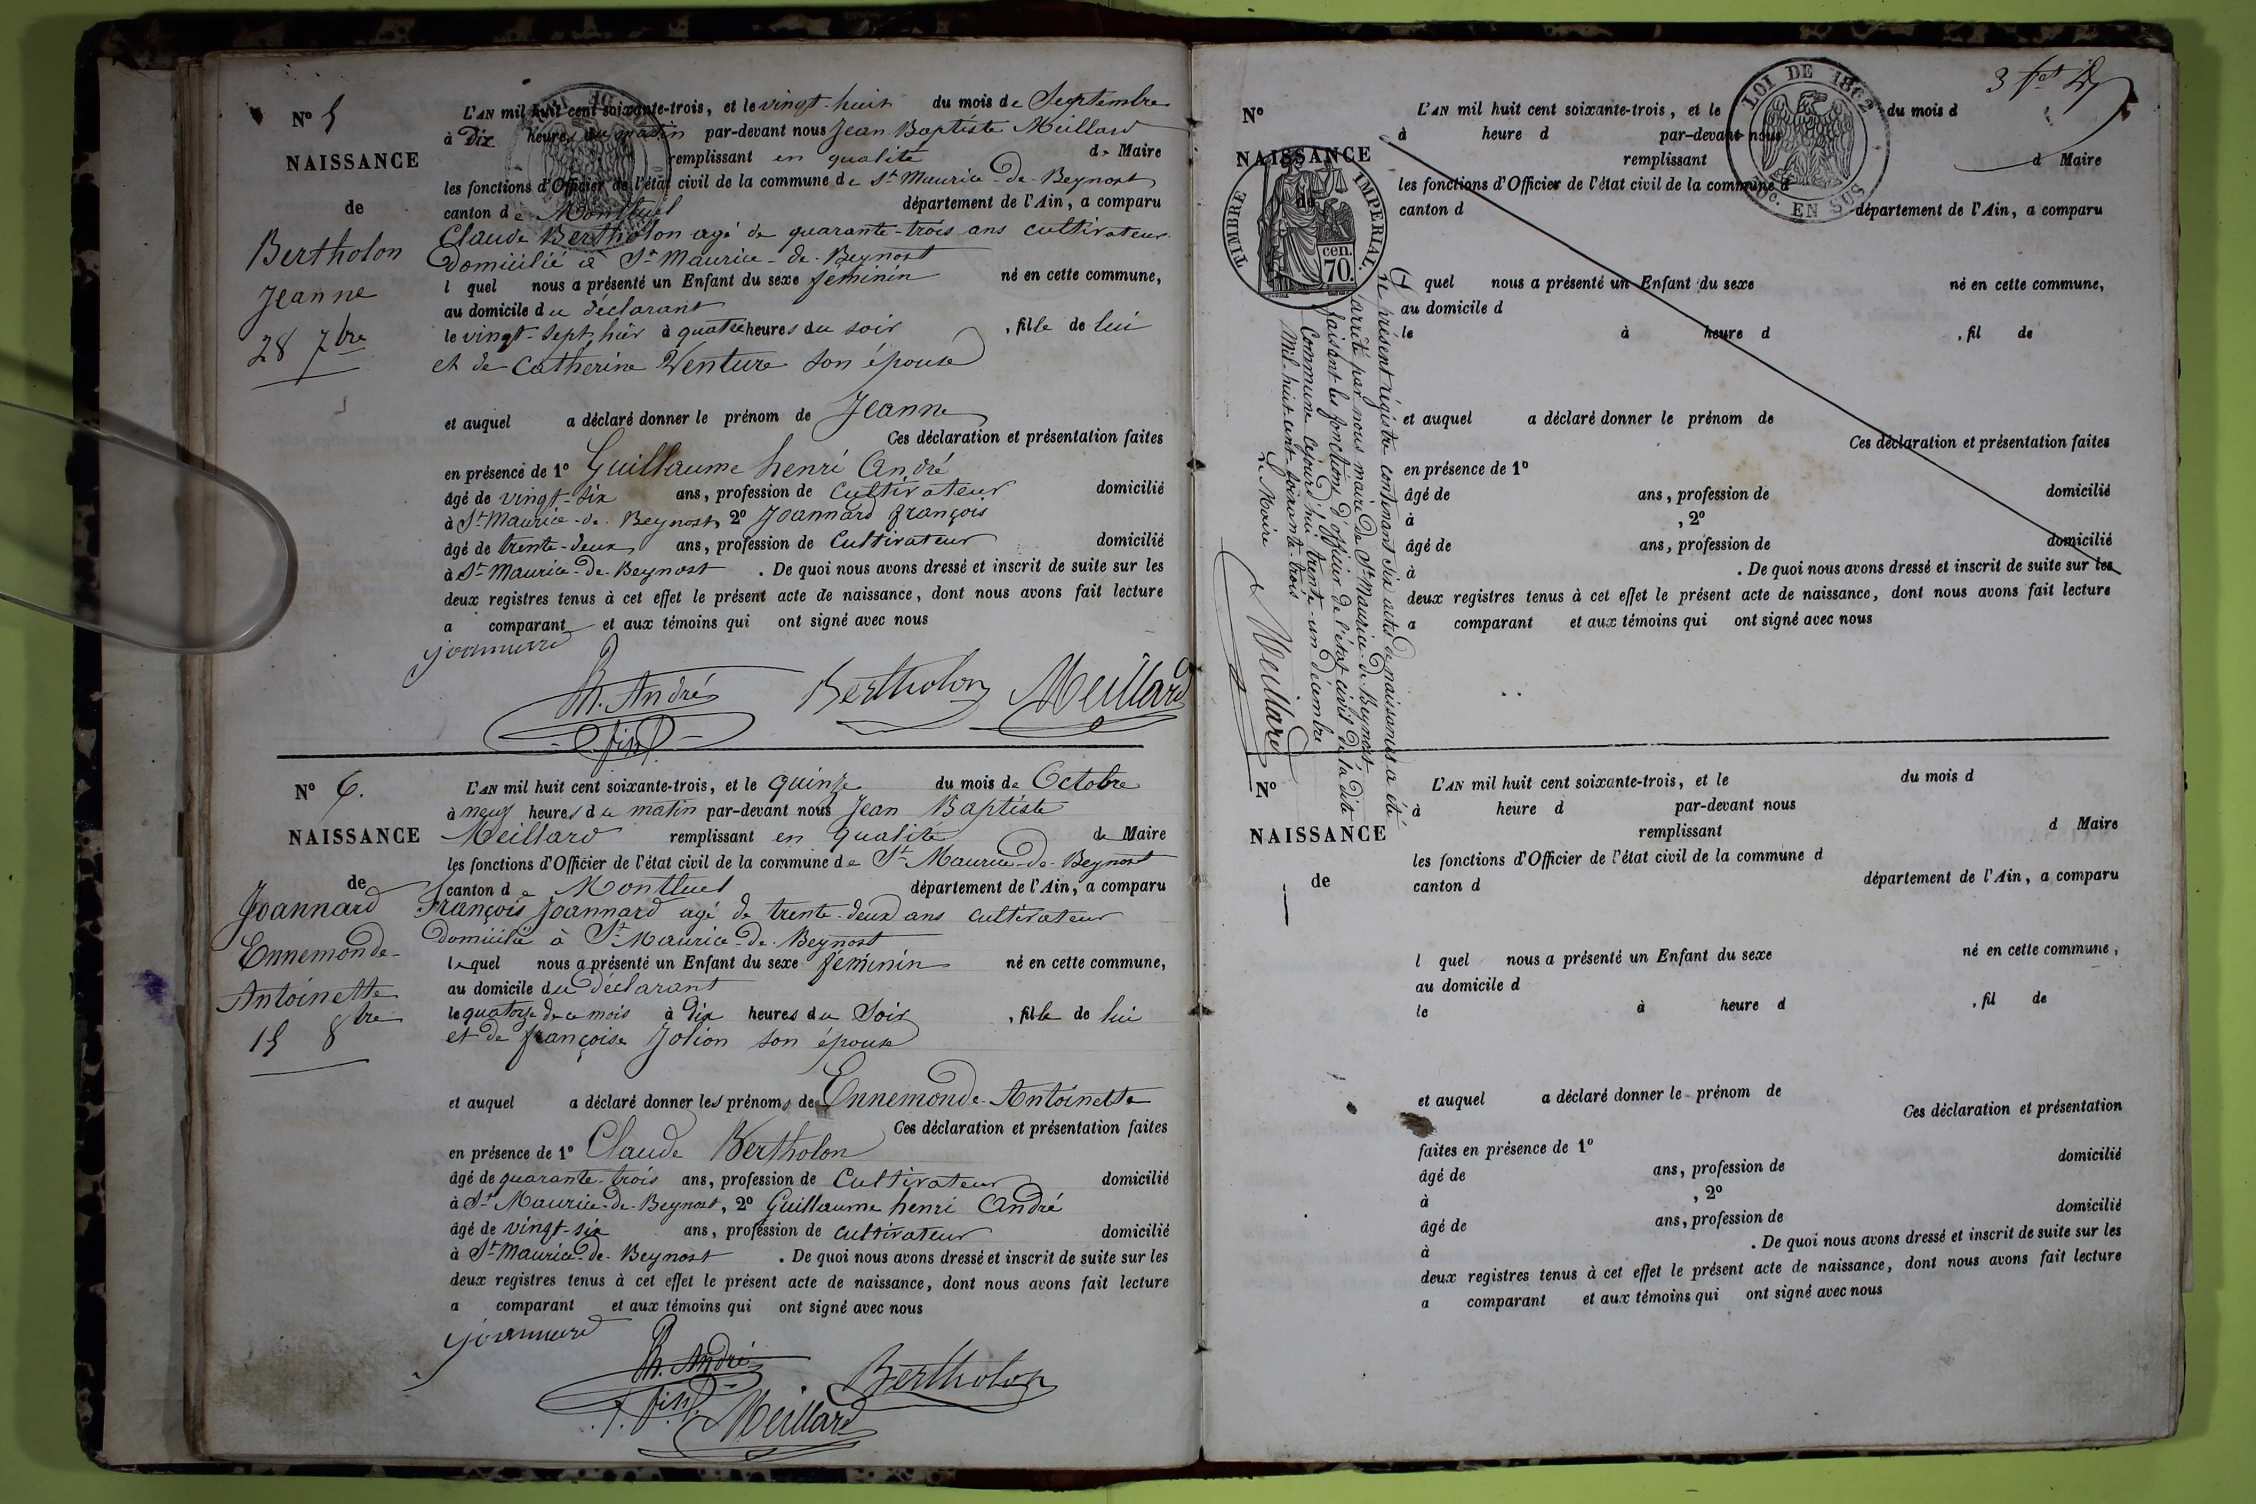 N° 5
NAISSANCE
de
Bertholon
Jeanne
28 7bre
L'AN mil huit cent soixante-trois, et le vingt-huit du mois de Septembre
à Dix heures du matin par-devant nous Jean Baptiste Meillard
remplissant en qualité de Maire
les fonctions d'Officier de l'état civil de la commune de St Maurice-de-Beynost
canton de Montluel département de l'Ain, a comparu
Claude Bertholon agé de quarante-trois ans cultivateur
Domicilié à St Maurice-de-Beynost
l quel nous a présenté un Enfant du sexe féminin né en cette commune,
au domicile du déclarant
le vingt-sept, hier à quatre heures du soir, fille de lui
et de Catherine Venture son épouse
et auquel a déclaré donner le prénom de Jeanne
Ces déclaration et présentation faites
en présence de 1° Guillaume henri André
âgé de vingt-six ans, profession de Cultivateur domicilié
à St Maurice-de-Beynost, 2° Joannard françois
âgé de trente-deux ans, profession de Cultivateur domicilié
à St Maurice-de-Beynost. De quoi nous avons dressé et inscrit de suite sur les
deux registres tenus à cet effet le présent acte de naissance, dont nous avons fait lecture
a comparant et aux témoins qui ont signé avec nous
joannard
André Bertholon Meillard
fils
N° 6.
NAISSANCE
de
Joannard
Ennemonde-
Antoinette
15 8bre
L'AN mil huit cent soixante-trois, et le quinze du mois de Octobre
à neuf heures du matin par-devant nous Jean Baptiste
Meillard remplissant en qualité de Maire
les fonctions d'Officier de l'état civil de la commune de St Maurice-de-Beynost
canton de Montluel département de l'Ain, a comparu
François Joannard agé de trente-deux ans cultivateur
Domicilié à St Maurice-de-Beynost
lequel nous a présenté un Enfant du sexe féminin né en cette commune,
au domicile du déclarant
le quatorze de ce mois à dix heures du Soir, fille de lui
et de françoise Jolion son épouse
et auquel a déclaré donner les prénoms de Ennemonde-Antoinette
Ces déclaration et présentation faites
en présence de 1° Claude Bertholon
âgé de quarante-trois ans, profession de Cultivateur domicilié
à St Maurice-de-Beynost, 2° Guillaume henri André
âgé de vingt-six ans, profession de cultivateur domicilié
à St Maurice-de-Beynost. De quoi nous avons dressé et inscrit de suite sur les
deux registres tenus à cet effet le présent acte de naissance, dont nous avons fait lecture
a comparant et aux témoins qui ont signé avec nous
joannard
André Bertholon
fils Meillard
LOI DE 1862
EN SUS
N°
NAISSANCE
de
TIMBRE IMPERIAL.
70. cen.
L'AN mil huit cent soixante-trois, et le du mois d
à heure d par-devant nous
remplissant d Maire
les fonctions d'Officier de l'état civil de la commune d
canton d département de l'Ain, a comparu
l quel nous a présenté un Enfant du sexe né en cette commune,
au domicile d
le à heure d, fil de
et auquel a déclaré donner le prénom de
Ces déclaration et présentation faites
en présence de 1°
âgé de ans, profession de domicilié
à, 2°
âgé de ans, profession de domicilié
à. De quoi nous avons dressé et inscrit de suite sur les
deux registres tenus à cet effet le présent acte de naissance, dont nous avons fait lecture
a comparant et aux témoins qui ont signé avec nous
Le présent régistre contenant six actes de naissances a été
arrêté par nous maire de St Maurice-de-Beynost
faisant les fonctions d'officier de l'état civil de la dite
Commune cejourd'hui trente-un décembre
mil-huit-cent-soixante-trois
Le Maire
Meillard
N°
NAISSANCE
de
L'AN mil huit cent soixante-trois, et le du mois d
à heure d par-devant nous
remplissant d Maire
les fonctions d'Officier de l'état civil de la commune d
canton d département de l'Ain, a comparu
l quel nous a présenté un Enfant du sexe né en cette commune,
au domicile d
le à heure d, fil de
et auquel a déclaré donner le prénom de
Ces déclaration et présentation
faites en présence de 1°
âgé de ans, profession de domicilié
à, 2°
âgé de ans, profession de domicilié
à. De quoi nous avons dressé et inscrit de suite sur les
deux registres tenus à cet effet le présent acte de naissance, dont nous avons fait lecture
a comparant et aux témoins qui ont signé avec nous